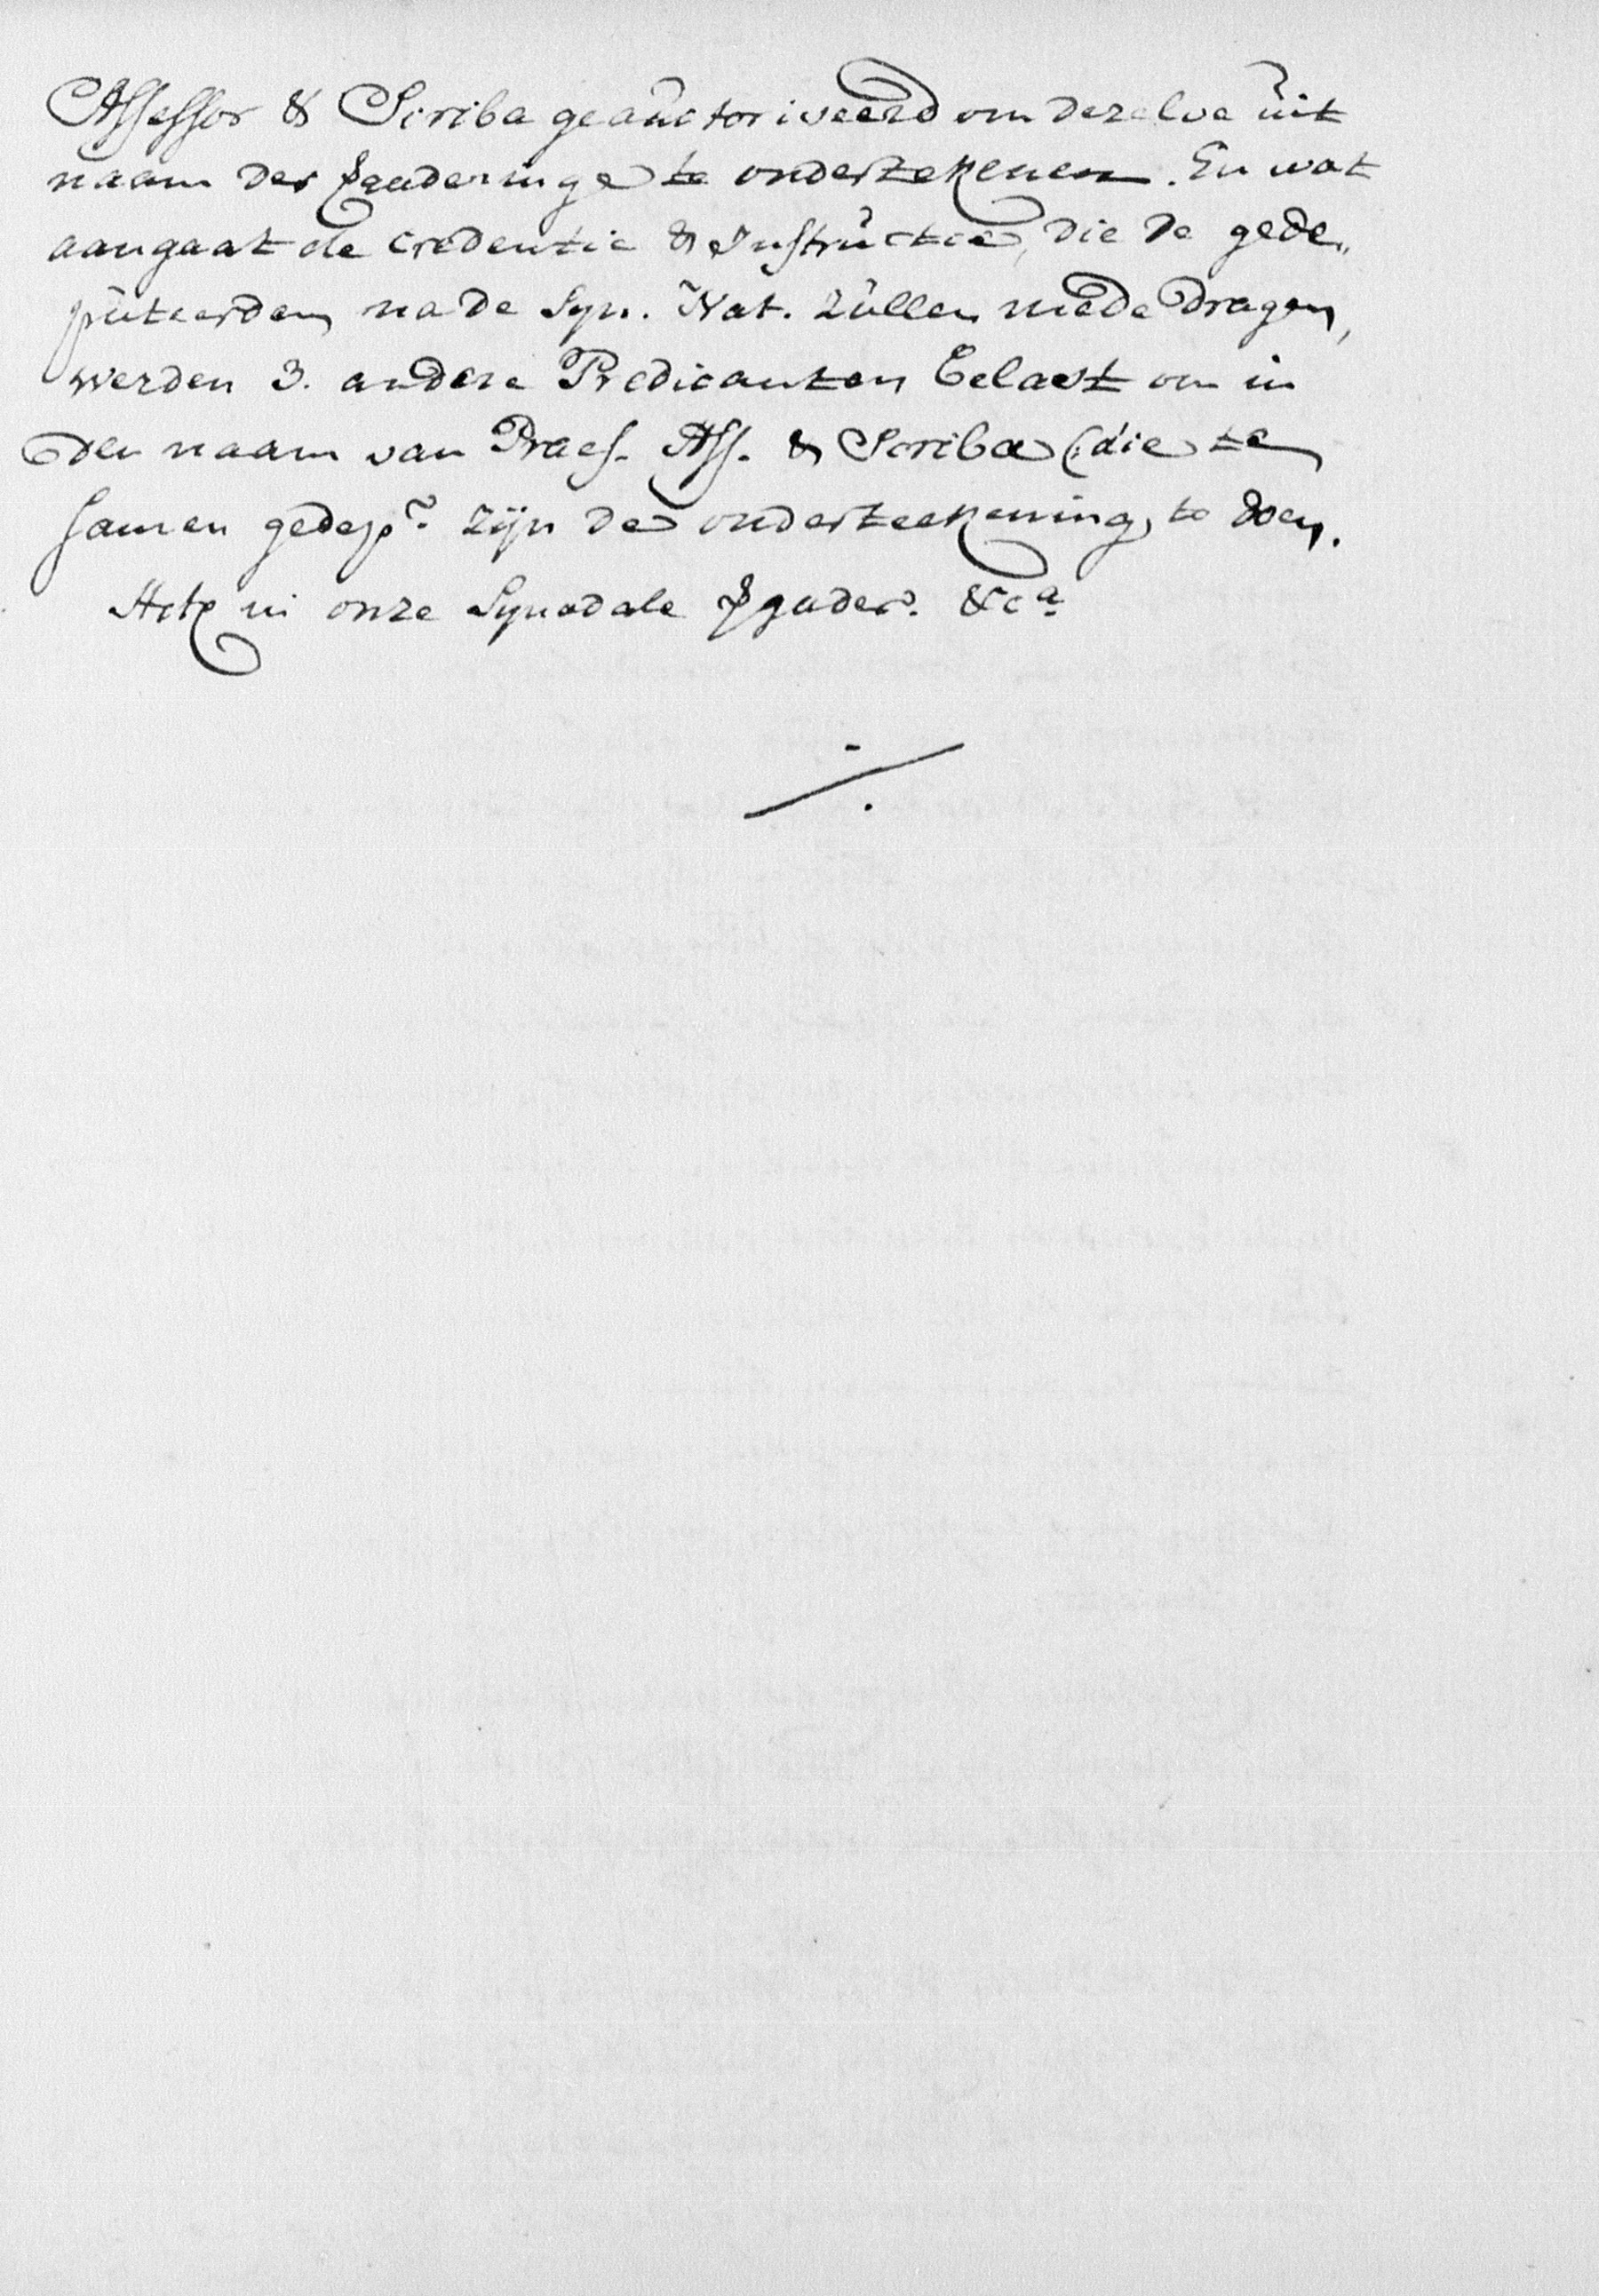 Assessor & Scriba geaúctoriseerd om dezelve úit
naam der vgaderinge te ondertekenen. En wat
aangaat de Credentie & Instrúctie, die de gede„
púteerden na de Syn. Nat. zúllen mede dragen,
werden 3. andere Predicanten belast om in
den naam van Praes. Ass. & Scriba (die te
samen gedepr. zijn de onderteekening te doen.
Acta in onze Synodale vgader. &ca